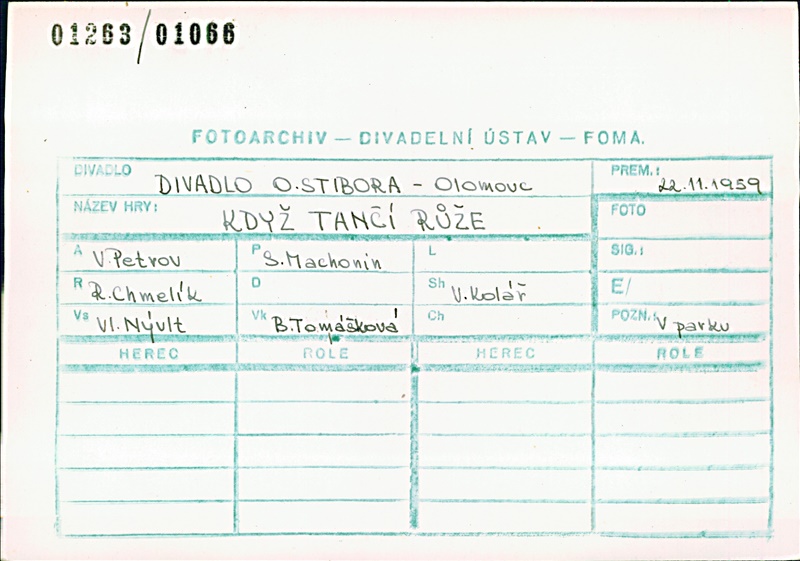 01263/01066
FOTOARCHIV — DIVADELNÍ ÚSTAV — FOMA.
DIVADLO DIVADLO O.STIBORA - Olomouc PREM.: 22.11.1959
NÁZEV HRY: KDYŽ TANČÍ RŮŽE FOTO
A V.Petrov P S.Machonin L SIG.:
R R.Chmelík D Sh V.Kolář E/
Vs Vl.Nývlt Vk B.Tomášková Ch POZN.: V parku
HEREC ROLE HEREC ROLE